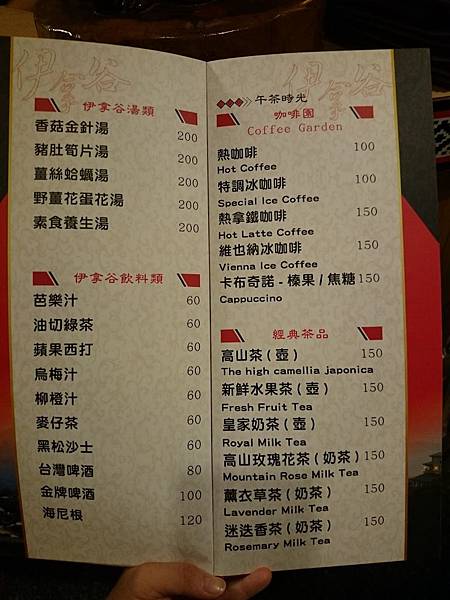 伊拿谷
伊拿谷湯類
香菇金針湯 200
豬肚筍片湯 200
薑絲蛤蠣湯 200
野薑花蛋花湯 200
素食養生湯 200
伊拿谷飲料類
芭樂汁 60
油切綠茶 60
蘋果西打 60
烏梅汁 60
柳橙汁 60
麥仔茶 60
黑松沙士 60
台灣啤酒 80
金牌啤酒 100
海尼根 120
伊拿谷
午茶時光
咖啡園
Coffee Garden
熱咖啡 100
Hot Coffee
特調冰咖啡 100
Special Ice Coffee
熱拿鐵咖啡 150
Hot Latte Coffee
維也納冰咖啡 150
Vienna Ice Coffee
卡布奇諾 - 榛果 / 焦糖 150
Cappuccino
經典茶品
高山茶 ( 壺 ) 150
The high camellia japonica
新鮮水果茶 ( 壺 ) 150
Fresh Fruit Tea
皇家奶茶 ( 壺 ) 150
Royal Milk Tea
高山玫瑰花茶 ( 奶茶 ) 150
Mountain Rose Milk Tea
薰衣草茶 ( 奶茶 ) 150
Lavender Milk Tea
迷迭香茶 ( 奶茶 ) 150
Rosemary Milk Tea